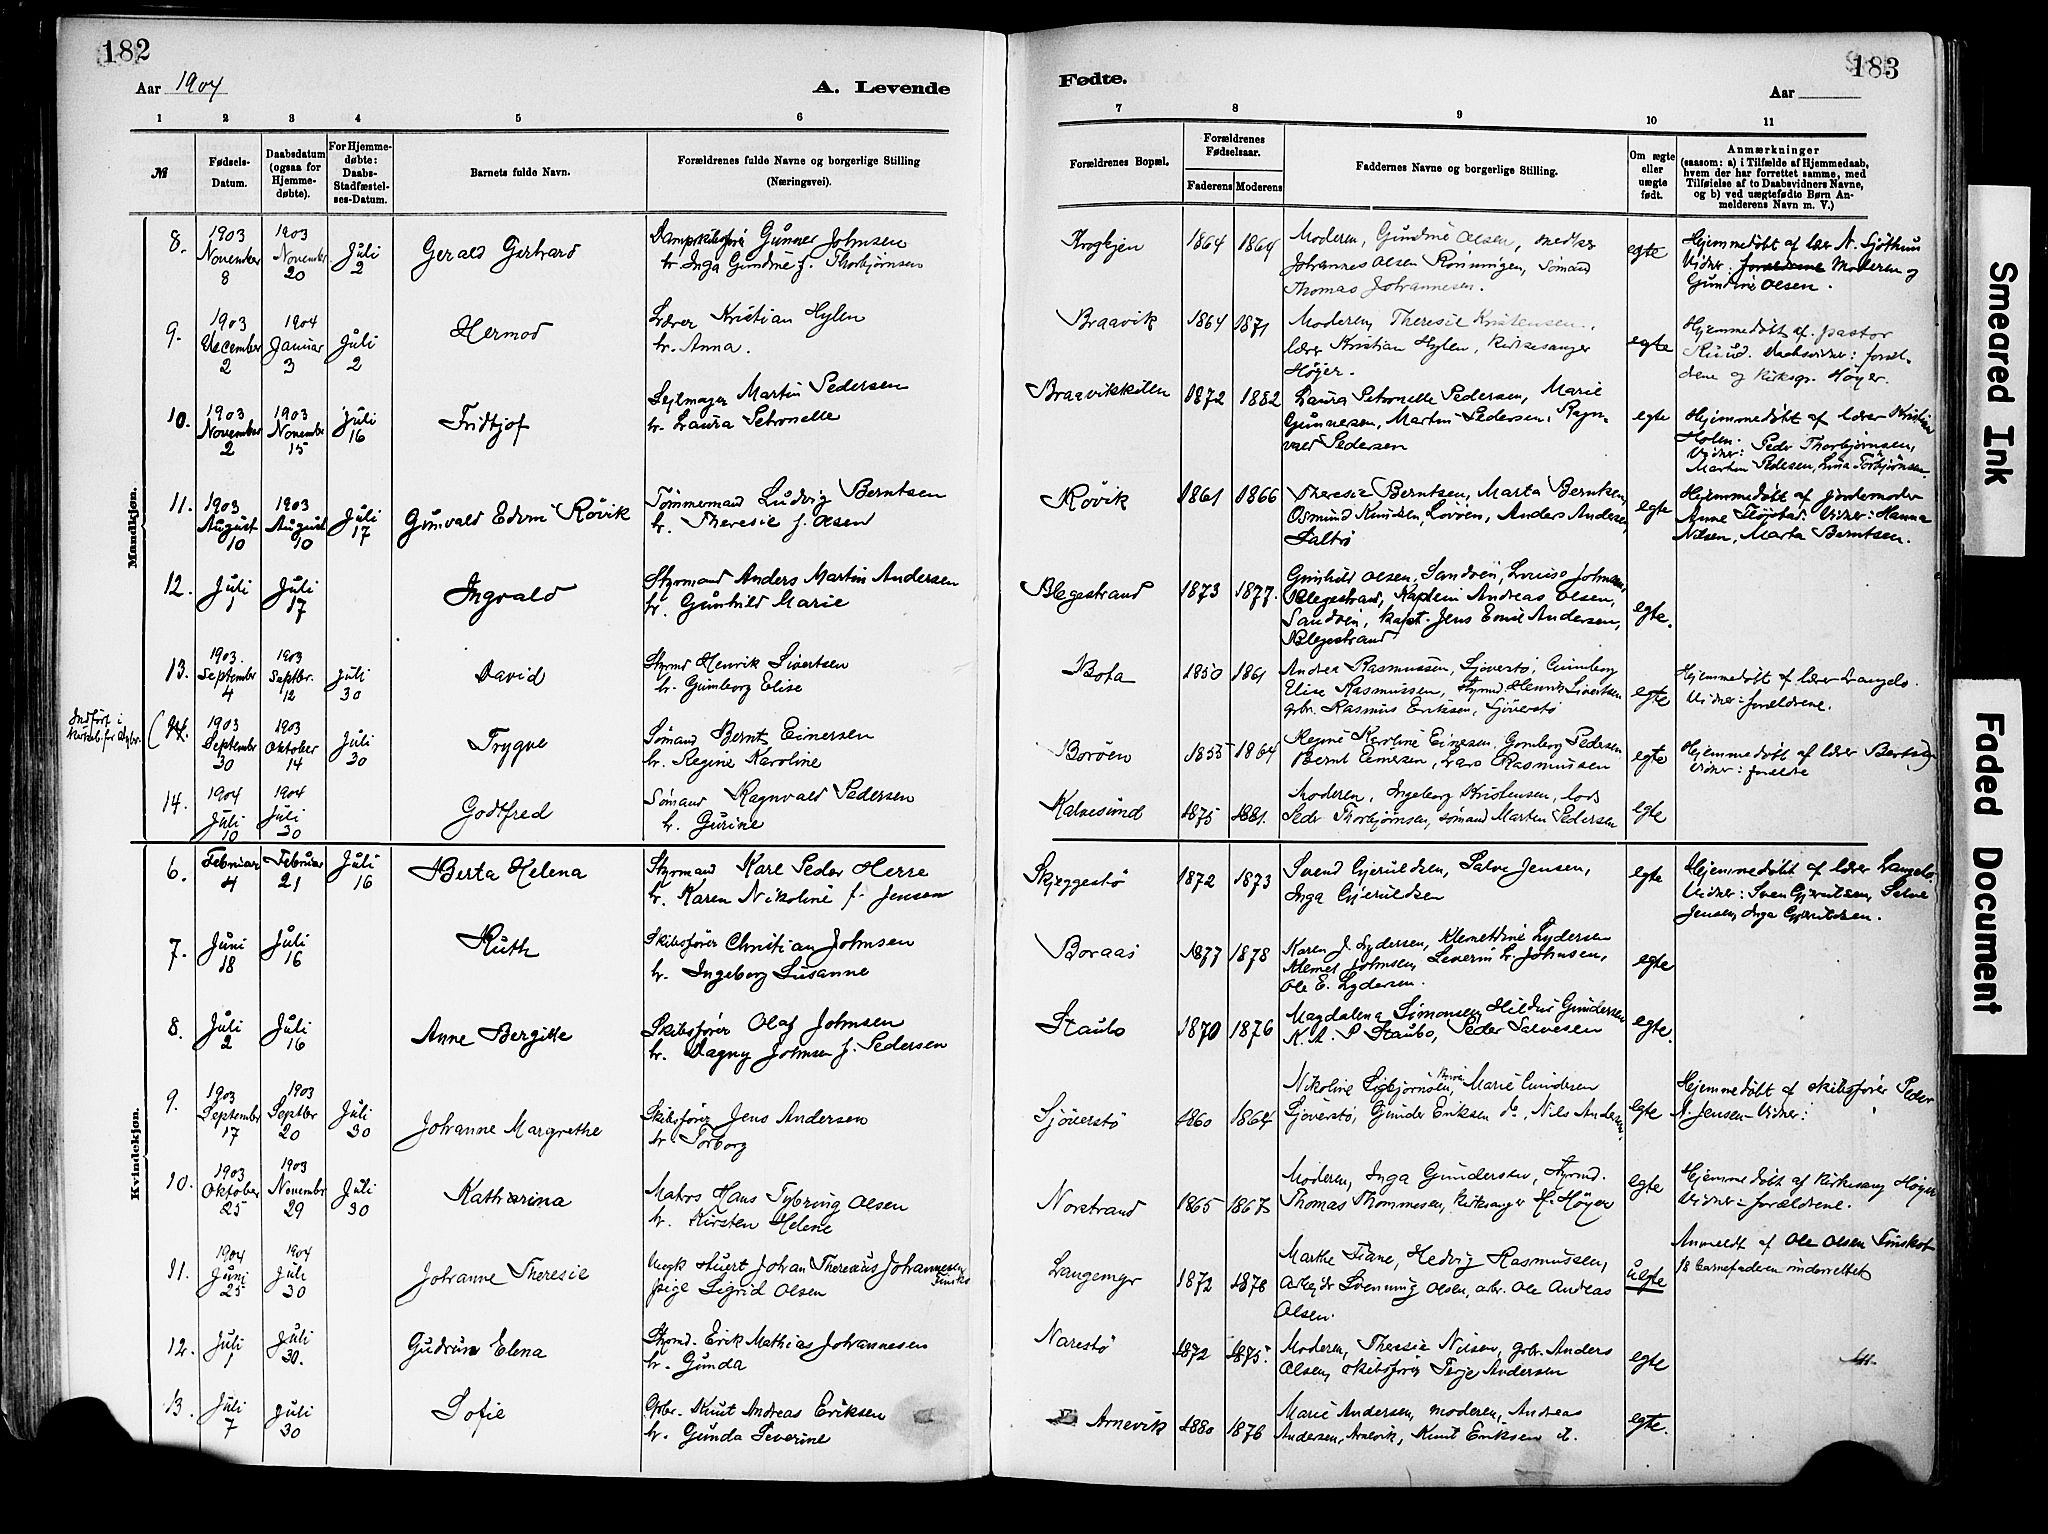 182
Aar 1904
A. Levende
1 2 3 4 5 6
№
Fødsels-
Datum.
Daabsdatum
(ogsaa for
Hjemme-
døbte).
For Hjemme-
døbte:
Daabs-
Stadfæstel-
ses-Datum.
Barnets fulde Navn.
Forældrenes fulde Navne og borgerlige Stilling
(Næringsvei).
Mandkjøn.
8.
1903
November
8
1903
November
20
Juli
2
Gerald Gerhard
Gunner Johnsen
h. Inga Gundine f. Thorbjørnsen
9.
1903
December
2
1904
Januar
3
Juli
2
Hermod
Lærer Kristian Hylen
h. Anna.
10.
1903
November
2
1903
November
15
Juli
16
Fridtjof
Sejlmager Martin Pedersen
h. Laura Petronelle
11.
1903
August
10
1903
August
10
Juli
17
Gunvald Edvin Røvik
Tømmermand Ludvig Berntsen
h. Theresie f. Olsen
12.
Juli
1
Juli
17
Ingvald
Styrmand Anders Martin Andersen
h. Gunhild Marie
13.
1903
September
4
1903
Septbr.
12
Juli
30
David
Styrmd Henrik Sivertsen
h. Gunborg Elise
Indført i
1903
September
30
1903
Oktober
14
Juli
30
Trygve
Sømand Bernt Einersen
h. Regine Karoline
14.
1904
Juli
10
1904
Juli
30
Godtfred
Sømand Ragnvald Pedersen
h. Gurine
Kvindekjøn.
6.
Februar
4
Februar
21
Juli
16
Berta Helena
Styrmand Karl Peder Herre
h. Karen Nikoline f. Jensen
7.
Juni
18
Juli
16
Ruth
Skibsfører Christian Johnsen
h. Ingeborg Susanne
8.
Juli
2
Juli
16
Anne Bergitte
Skibsfører Olaf Johnsen
h. Dagny Johnsen f. Pedersen
9.
1903
September
17
1903
Septbr
20
Juli
30
Johanne Margrethe
Skibsfører Jens Andersen
h. Torborg
10.
1903
Oktober
25
1903
Novembr
29
Juli
30
Katharina
Matros Hans Tybring Olsen
h. Kirsten Helene
11.
1904
Juni
25
1904
Juli
30
Johanne Theresie
Johan Johannesen
pige Sigrid Olsen
12.
Juli
1
Juli
30.
Gudrun Elena
Styrmd. Erik Mathias Johannesen
h. Gunda
13.
Juli
7
Juli
30
Sofie
Gbr. Knut Andreas Eriksen
h. Gunda Severine
183
Fødte.
Aar
7 8 9 10 11
Forældrenes Bopæl.
Forældrenes
Fødselsaar.
Faderens Moderens
Faddernes Navne og borgerlige Stilling.
Om ægte
eller
uægte
født.
Anmærkninger
(saasom: a) i Tilfælde af Hjemmedaab,
hvem der har forrettet samme, med
Tilføielse af to Daabsvidners Navne,
og b) ved uægtefødte Børn An-
melderens Navn m. V.)
Krogkjen 1864 1864
Moderen, Gundine Olsen,
Johannes Olsen Rønningen, Sømand
Thomas Johannesen.
egte
Hjemmedøbt af lær N. Sjøthun
Vidner: Forældrene Moderen og
Gundine Olsen.
Braavik 1864 1871
Moderen, Theresie Kristensen,
lærer Kristian Hylen, Kirkesanger
Høyer.
egte
Hjemmedøbt af pastor
Ruud. Daabsvidner: foræl-
drene og Kirksgr. Høyer.
Braavikkilen 1872 1882
Laura Petronelle Pedersen, Marie
Gunnesen, Martin Pedersen, Ragn-
vald Pedersen
egte
Hjemmedøbt af lærer Kristian
Holen. Peder Thorbjørnsen,
Martin Pedersen, Lina Torbjørnsen
Røvik 1861 1866
Theresie Berntsen, Marta Berntsen,
Osmund Knudsen, Lovøen, Anders Andersen,
Saltrø
egte
Hjemmedøbt af Jordemoder
Anne Fløistad. Vidner: Hanna
Nilsen, Marta Berntsen.
Blegestrand 1873 1877.
Gunhild Olsen, Sandvin, Lovise Johnsen,
Blegestrand, Kaptein Andreas Olsen,
Sandvin, Kapt. Jens Emil Andersen,
Blegestrand
egte.
Bota 1850 1861
Andrea Rasmussen, Sjøverstø, Gunborg
Elise Rasmussen, Styrmd Henrik Sivertsen
grbr. Rasmus Eriksen, Sjøverstø
egte
Hjemmedøbt af lærer Langelo.
Vidner: forældrene.
Borøen 1855 1864
Regine Karoline Einersen, Gomborg Pedersen
Bernt Einersen, Lars Rasmussen
egte
Hjemmedøbt af lærer
Vidner: forældre
Kalvesund 1875 1881.
Moderen, Ingeborg Kristensen, lods
Peder Thorbjørnsen, sømand Martin Pedersen
egte
Skjeggestø 1872 1873
Svend Gjeruldsen, Salve Jensen,
Inga Gjeruldsen
egte
Hjemmedøbt af lærer Langelo.
Vidner: Sven Gjeruldsen, Salve
Jensen, Inga Gjeruldsen.
Boraas 1877 1878
Karen J. Lydersen, Klemettine Lydersen
Klemet Johnsen, Severin L. Johnsen,
Ole E. Lydersen.
egte
Staubo 1870 1876
Magdalena Simonsen, Hildur Gundersen
K. A. P. Staubo, Peder Salvesen
egte.
Sjøverstø 1860 1864
Nikoline Marie Gundersen
Sjøverstø, Gunder Eriksen do, Nils Andersen.
egte
Hjemmedøbt af skibsfører Peder
N. Jensen - Vidner:
Norstrand 1865 1867
Moderen, Inga Gundersen, Styrmd.
Thomas Thommesen, Kirkesanger H. Høyer
egte
Hjemmedøbt af Kirkesang Høyer
Vidner: forældrene.
Langemyr 1872 1878
Marthe Tiane, Hedvig Rasmussen,
Arbejdr Svenning Olsen, arbr. Ole Andreas
Olsen.
uegte
Anmeldt af Ole Olsen
barnefaderen underrettet
Narestø 1872 1875.
Moderen, Theresie Nilsen, gbr. Anders
Olsen, skibsfører Terje Andersen
egte
Arnevik 1880 1876
Marie Andersen, moderen, Andreas
Andersen, Arnevik, Knut Eriksen d.
egte.
Smeared Ink
Faded Document